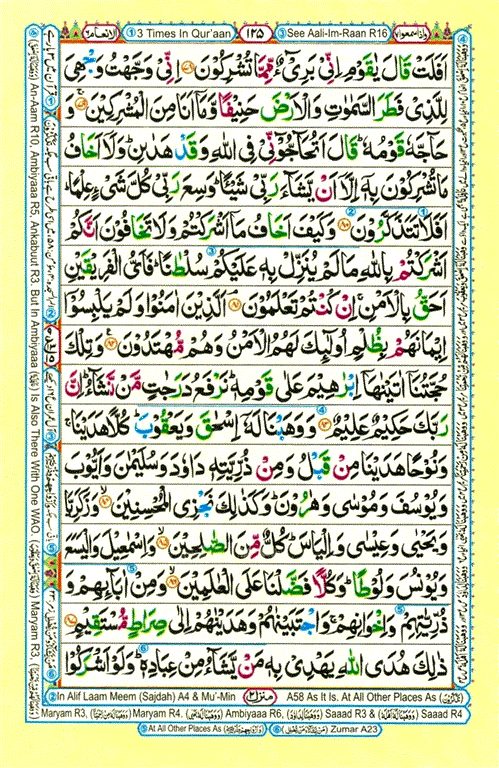 الانعام ٦ ① 3 Times In Qur'aan ١٢٥ ③ See Aali-Im-Raan R16 واذاسمعوا ٧
اَفَلَتْ قَالَ يٰقَوْمِ اِنِّیْ بَرِیْٓءٌ مِّمَّا تُشْرِكُوْنَ ۝۷۸ اِنِّیْ وَجَّهْتُ وَجْهِیَ
لِلَّذِیْ فَطَرَ السَّمٰوٰتِ وَالْاَرْضَ حَنِیْفًا وَّمَاۤ اَنَا مِنَ الْمُشْرِكِیْنَ ۝۷۹ وَ
حَآجَّهٗ قَوْمُهٗ ؕ قَالَ اَتُحَآجُّوْٓنِّیْ فِی اللّٰهِ وَقَدْ هَدٰىنِ ؕ وَلَاۤ اَخَافُ
مَا تُشْرِكُوْنَ بِهٖۤ اِلَّاۤ اَنْ یَّشَآءَ رَبِّیْ شَیْـًٔا ؕ وَسِعَ رَبِّیْ كُلَّ شَیْءٍ عِلْمًا ؕ
اَفَلَا تَتَذَكَّرُوْنَ ۝۸۰ وَكَیْفَ اَخَافُ مَاۤ اَشْرَكْتُمْ وَلَا تَخَافُوْنَ اَنَّكُمْ
اَشْرَكْتُمْ بِاللّٰهِ مَا لَمْ یُنَزِّلْ بِهٖ عَلَیْكُمْ سُلْطٰنًا ؕ فَاَیُّ الْفَرِیْقَیْنِ
اَحَقُّ بِالْاَمْنِ ۚ اِنْ كُنْتُمْ تَعْلَمُوْنَ ۝۸۱ اَلَّذِیْنَ اٰمَنُوْا وَلَمْ یَلْبِسُوْۤا
اِیْمَانَهُمْ بِظُلْمٍ اُولٰٓئِكَ لَهُمُ الْاَمْنُ وَهُمْ مُّهْتَدُوْنَ ۝۸۲ وَتِلْكَ
حُجَّتُنَاۤ اٰتَیْنٰهَاۤ اِبْرٰهِیْمَ عَلٰی قَوْمِهٖ ؕ نَرْفَعُ دَرَجٰتٍ مَّنْ نَّشَآءُ ؕ اِنَّ
رَبَّكَ حَكِیْمٌ عَلِیْمٌ ۝۸۳ وَوَهَبْنَا لَهٗۤ اِسْحٰقَ وَیَعْقُوْبَ ؕ كُلًّا هَدَیْنَا ۚ
وَنُوْحًا هَدَیْنَا مِنْ قَبْلُ وَمِنْ ذُرِّیَّتِهٖ دَاوٗدَ وَسُلَیْمٰنَ وَاَیُّوْبَ
وَیُوْسُفَ وَمُوْسٰی وَهٰرُوْنَ ؕ وَكَذٰلِكَ نَجْزِی الْمُحْسِنِیْنَ ۝۸۴ وَزَكَرِیَّا
وَیَحْیٰی وَعِیْسٰی وَاِلْیَاسَ ؕ كُلٌّ مِّنَ الصّٰلِحِیْنَ ۝۸۵ وَاِسْمٰعِیْلَ وَالْیَسَعَ
وَیُوْنُسَ وَلُوْطًا ؕ وَكُلًّا فَضَّلْنَا عَلَی الْعٰلَمِیْنَ ۝۸۶ وَمِنْ اٰبَآئِهِمْ وَ
ذُرِّیّٰتِهِمْ وَاِخْوَانِهِمْ ۚ وَاجْتَبَیْنٰهُمْ وَهَدَیْنٰهُمْ اِلٰی صِرَاطٍ مُّسْتَقِیْمٍ ۝۸۷
ذٰلِكَ هُدَی اللّٰهِ یَهْدِیْ بِهٖ مَنْ یَّشَآءُ مِنْ عِبَادِهٖ ؕ وَلَوْ اَشْرَكُوْا
② In Alif Laam Meem (Sajdah) A4 & Mu'-Min منزل ٢ A58 As It Is. At All Other Places As
Maryam R3, Maryam R4. Ambiyaaa R6, Saaad R3 & Saaad R4
⑤ At All Other Places As ⑥ Zumar A23
An-Aam R10, Ambiyaaa R5, Ankabuut R3. But In Ambiyaaa Is Also There With One WAO, Maryam R3,